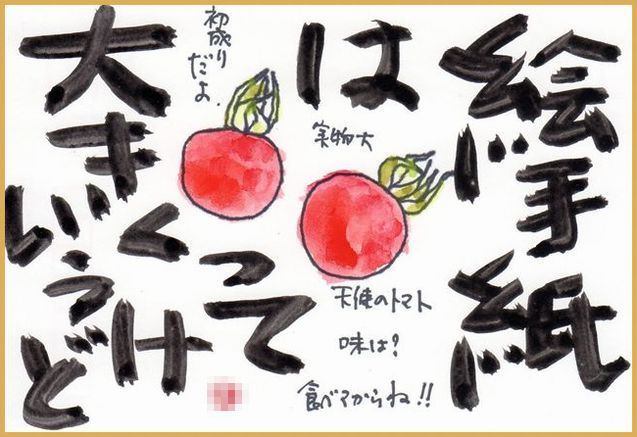 絵手紙
は
大きく
って
いう
けど
初成り
だよ.
実物大
天使のトマト
味は?
食べてからね!!